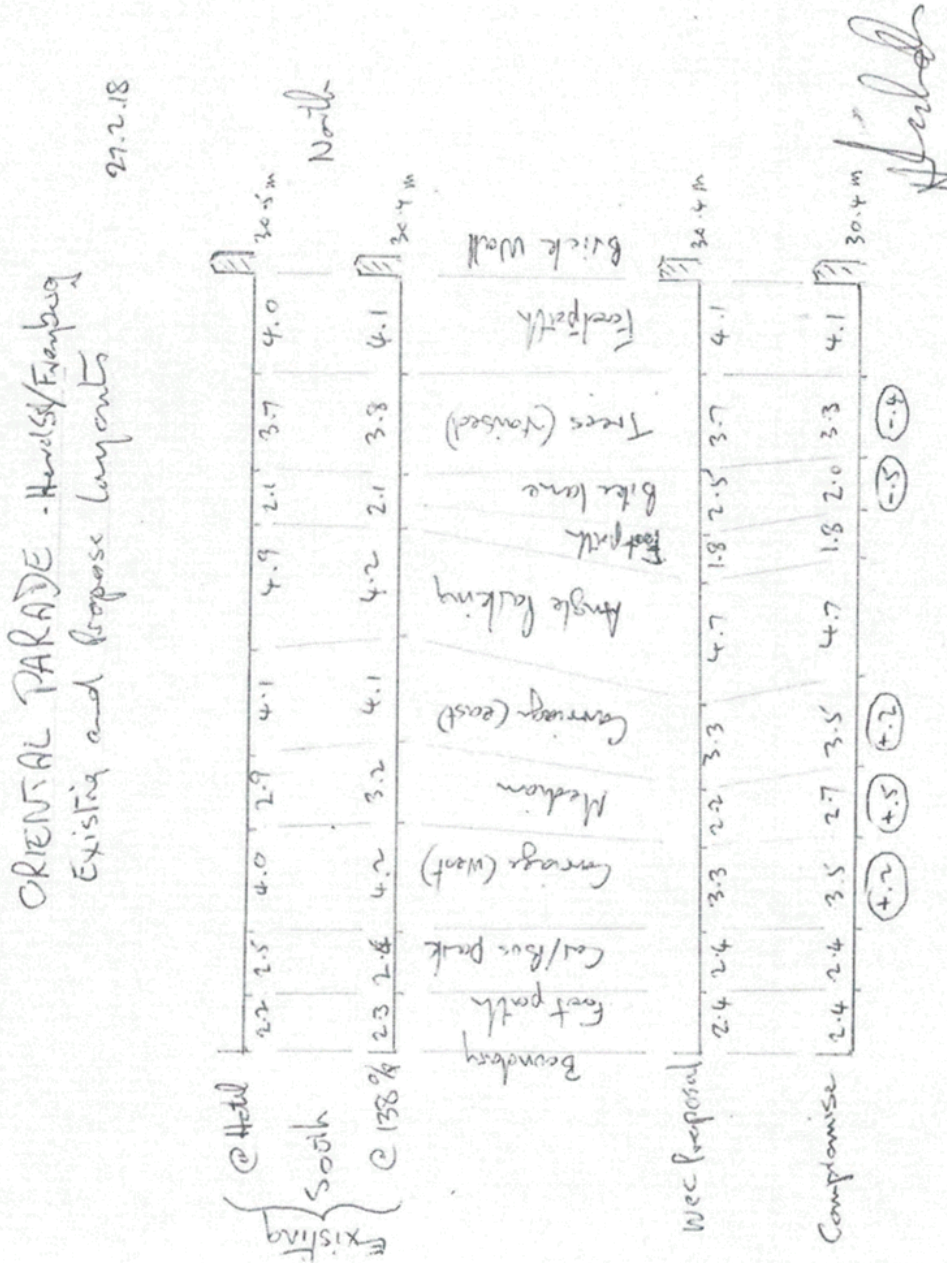 ORIENTAL PARADE - Herd St/Freyberg
Existing and Propose Layouts
27.2.18
Existing
@ Hotel
2.7 2.5 4.0 2.9 4.1 4.9 2.1 3.7 4.0 30.5 m
South North
@ 138 % 2.3 2.4 4.2 3.2 4.1 4.2 2.1 3.8 4.1 30.4 m
Boundary
Foot path
Car/Bus park
Carriage (West)
Median
Carriage (east)
Angle Parking
Footpath
Bike lane
Trees (raised)
Footpath
Brick Wall
WCC Proposal 2.4 2.4 3.3 2.2 3.3 4.7 1.8 2.5 3.7 4.1 30.4 m
Compromise 2.4 2.4 3.5 2.7 3.5 4.7 1.8 2.0 3.3 4.1 30.4 m
+.2 +.5 +.2 -.5 -.4